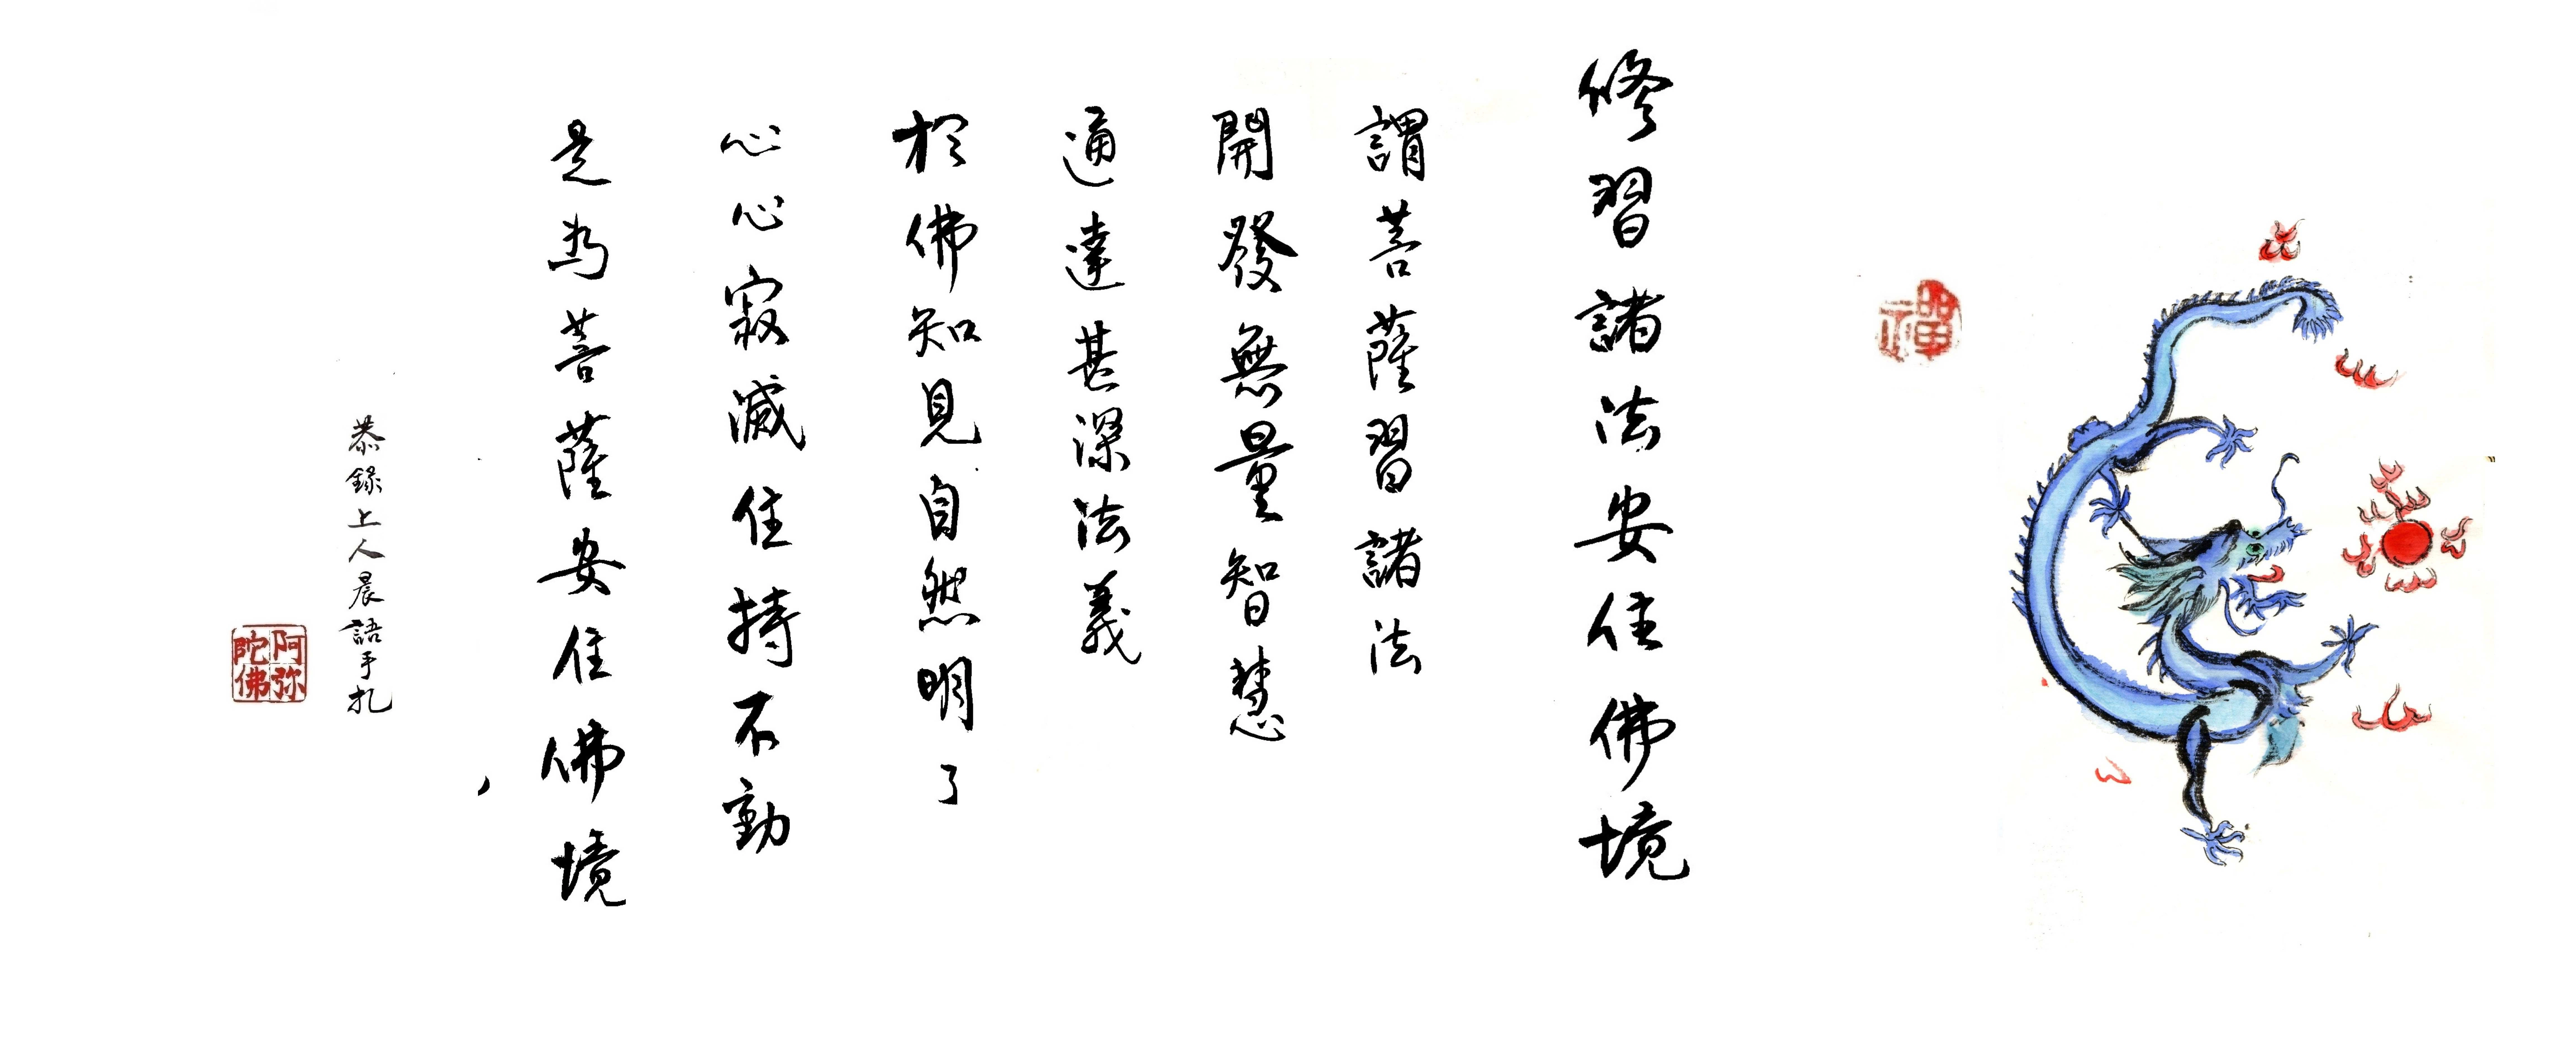 禪
修習諸法安住佛境
謂菩薩習諸法
開發無量智慧
通達甚深法義
於佛知見自然明了
心心寂滅住持不動
是為菩薩安住佛境
恭錄上人晨語手札
阿弥陀佛